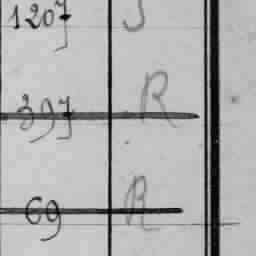 1207 J
397 R
69 R